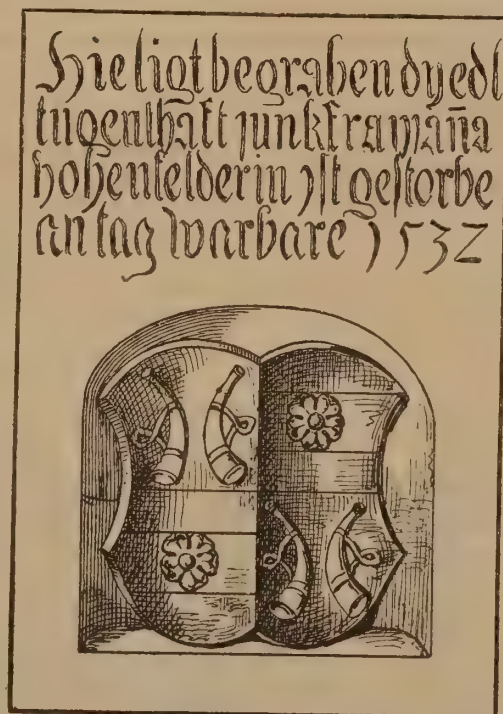 Hie ligt begraben dy edl
tugenthaft junkfraw aña
hohenfelderin yst gestorbe
an tag warbare 1532